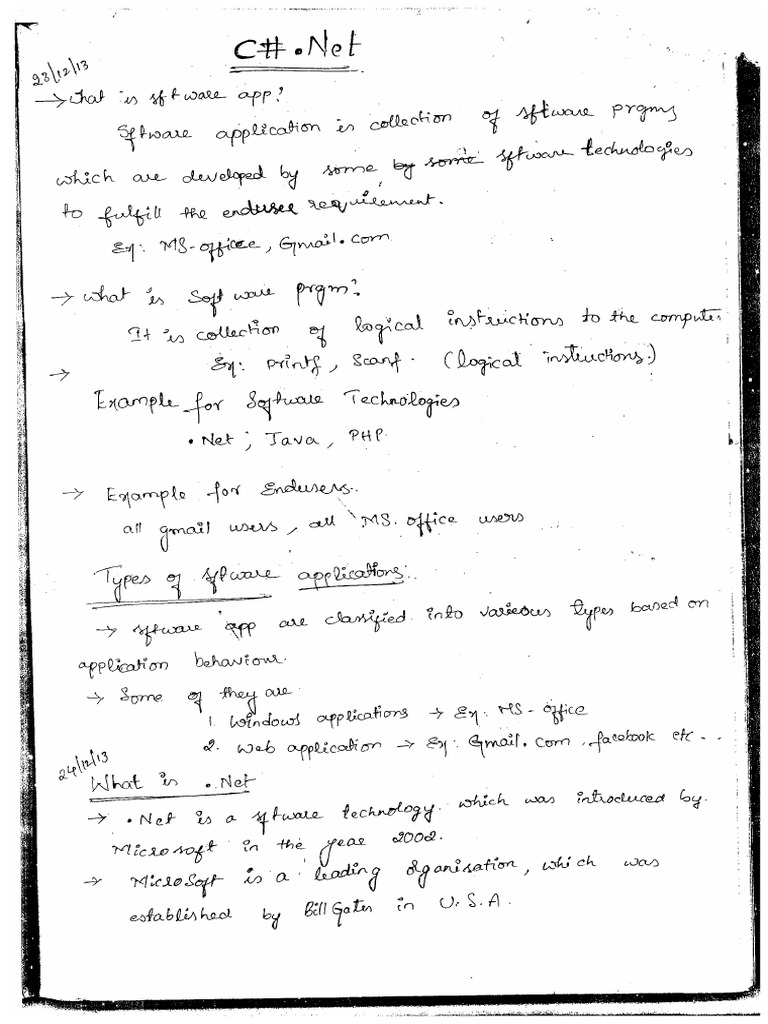 C#.Net
23/12/13
→ What is sftware app?
Sftware application is collection of sftware prgms
which are developed by some by some sftware technologies
to fulfill the enduser requirement.
Ex: MS-office, Gmail.com
→ What is Software prgm?
It is collection of logical instructions to the computer
Ex: printf, Scanf. (logical instructions.)
→
Example for Software Technologies
.Net; Java, PHP.
→ Example for Endusers..
all gmail users, all MS.office users
Types of sftware applications:.
→ sftware app are classified into various types based on
application behaviour.
→ Some of they are.
1. Windows applications → Ex: MS-office
2. Web application → Ex: Gmail.com, facebook etc...
24/12/13
What is .Net
→ .Net is a sftware technology. which was introduced by.
Microsoft in the year 2002.
→ MicroSoft is a leading organisation, which was
established by Bill Gates in U.S.A.